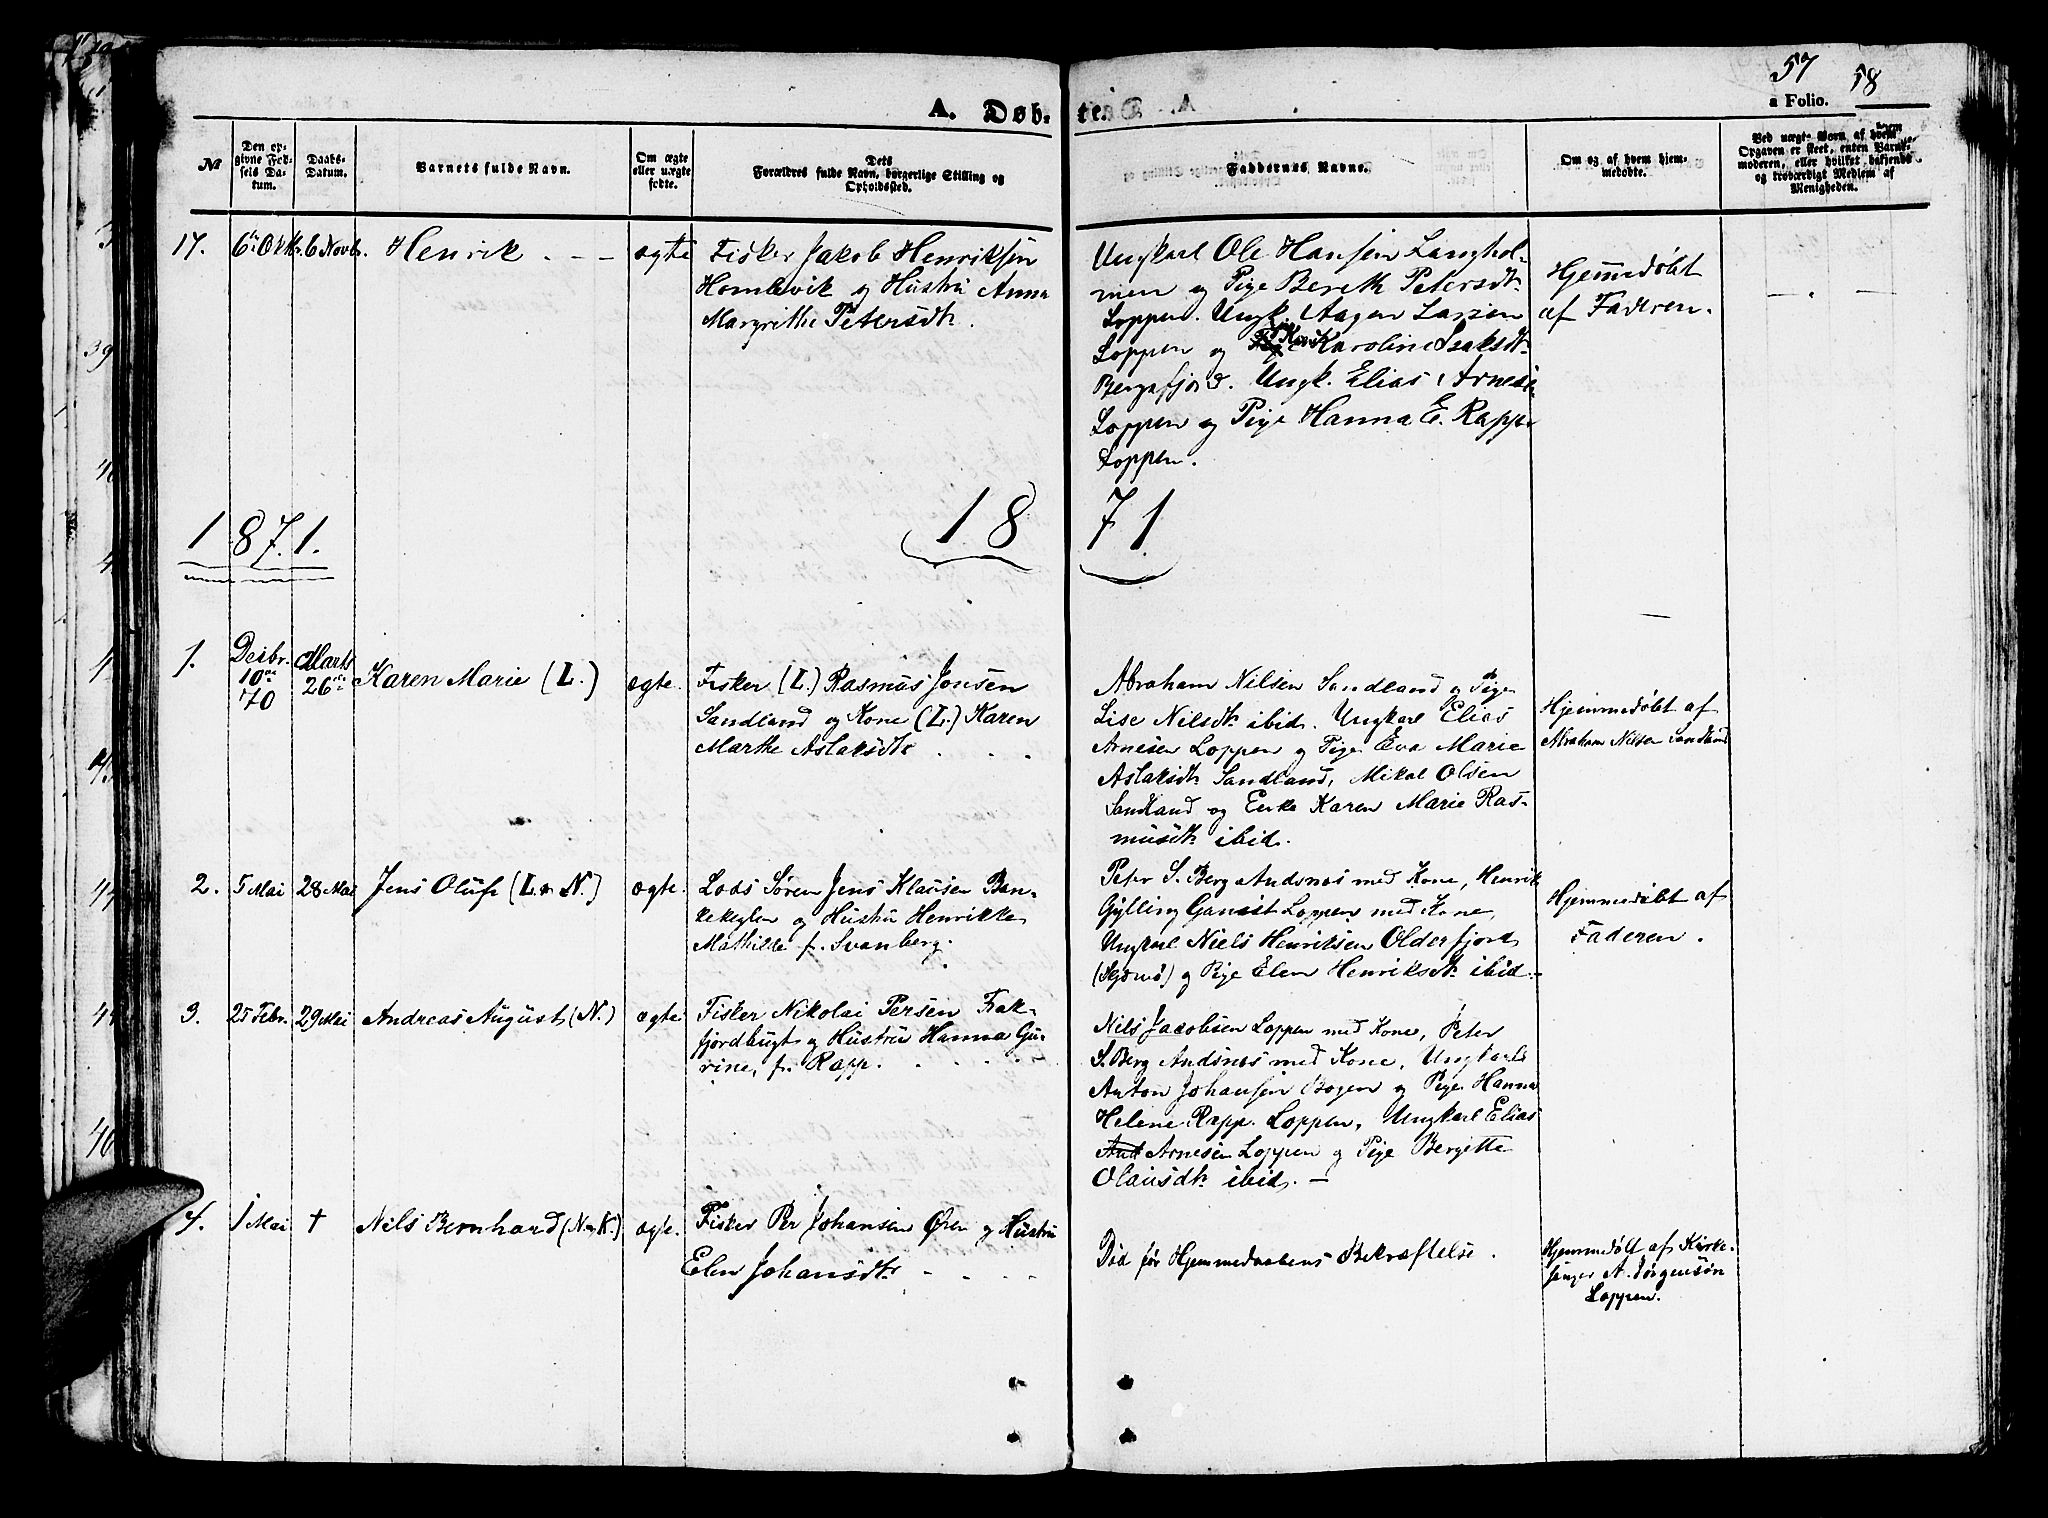 57 58
A. Døb- te.
a Folio.
№
Den op-
givne Fød-
sels Da-
tum.
Daabs-
Datum.
Barnets fulde Navn.
Om ægte
eller uægte
fødte.
Dets
Forældres fulde Navn, borgerlige Stilling og
Opholdssted.
Faddernes Navne.
Om og af hvem hjem-
medøbte.
Ved uægte Børn, af hvem
Opgaven er skeet, enten Barne-
moderen, eller hvilket bekjendt
og troværdigt Medlem af
Menigheden.
17. 6te Oktr. 6 Novbr. Henrik - - - ægte
Fisker Jakob Henriksen
og Hustru Anna
Margrithe Petersdtr.
Ungkarl Ole Hansen Langhol-
men og Pige Bereth Petersdtr.
Loppen. Ungk. Aagen Larsen
Loppen og Karoline Isaksdtr.
Bergsfjord. Ungk. Elias Arnesen
Loppen og Pige Hanna E. Rapp
Loppen.
Hjemmedøbt
af Faderen.
1871. 18 71
1. Desbr.
10de
70
Marts
26de
Karen Marie (L.) ægte.
Fisker (L.) Rasmus Jonsen
Sandland og Kone (L.) Karen
Marthe Aslaksdtr.
Abraham Nilsen Sandland og Pige
Lise Nilsdtr. ibid. Ungkarl Elias
Arnesen Loppen og Pige Eva Marie
Aslaksdtr Sandland, Mikal Olsen
Sandland og Enke Karen Marie Ras-
musdtr. ibid.
Hjemmedøbt af
Abraham Nilsen Sandland
2. 5 Mai 28 Mai Jens Oluf (L. N.) ægte.
Lods Søren Jens Klausen Ban-
kekeglen og Hustru Henrikke
Mathilde f. Svanberg.
Peter S. Berg Andsnes med Kone, Henrik
Gylling Loppen med Kone,
Ungkarl Niels Henriksen Olderfjord
(Skjærvø) og Pige Elen Henriksdtr. ibid.
Hjemmedøbt af
Faderen.
3. 25 Febr. 29 Mai Andreas August (N.) ægte
Fisker Nikolai Persen Frak-
fjordbugt og Hustru Hanna Gu-
rine, f. Rapp.
Nils Jacobsen Loppen med Kone, Peter
S. Berg Andsnes med Kone, Ungkarl
Anton Johansen Bogen og Pige Hanna
Helene Rapp. Loppen, Ungkarl Elias
And Arnesen Loppen og Pige Bergitte
Olausdtr. ibid. —
4. 1 Mai † Nils Bernhard (N. K.) ægte.
Fisker Per Johansen Øren og Hustru
Elen Johansdtr.
Død før Hjemmedaabens Bekræftelse.
Hjemmedøbt af Kirke-
sanger A. Jørgensøn
Loppen.